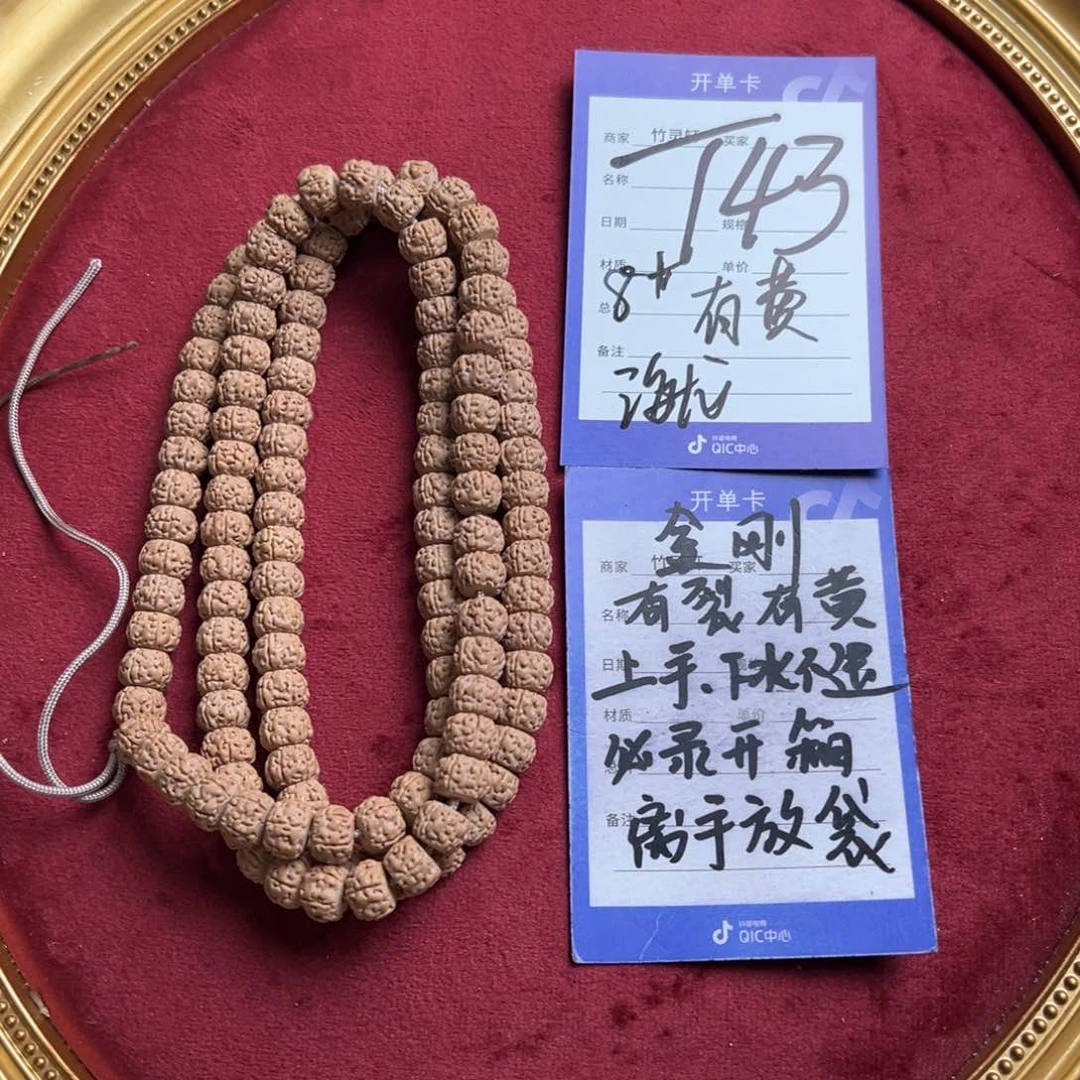 开单卡
商家 竹灵轩 买家
T43
名称
日期 规格
材质 单价
8# 有黄
总
备注
海龙
抖音电商
QIC中心
开单卡
金刚
商家 竹 买家
有裂有黄
名称
日期
上手、下水不退
材质 单价
必录开箱
备注
离手放袋
抖音电商
QIC中心